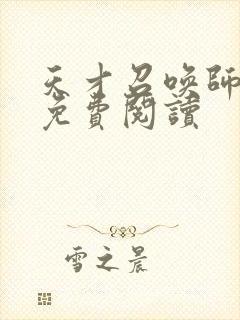 天才召喚師
免費閱讀
雪之晨